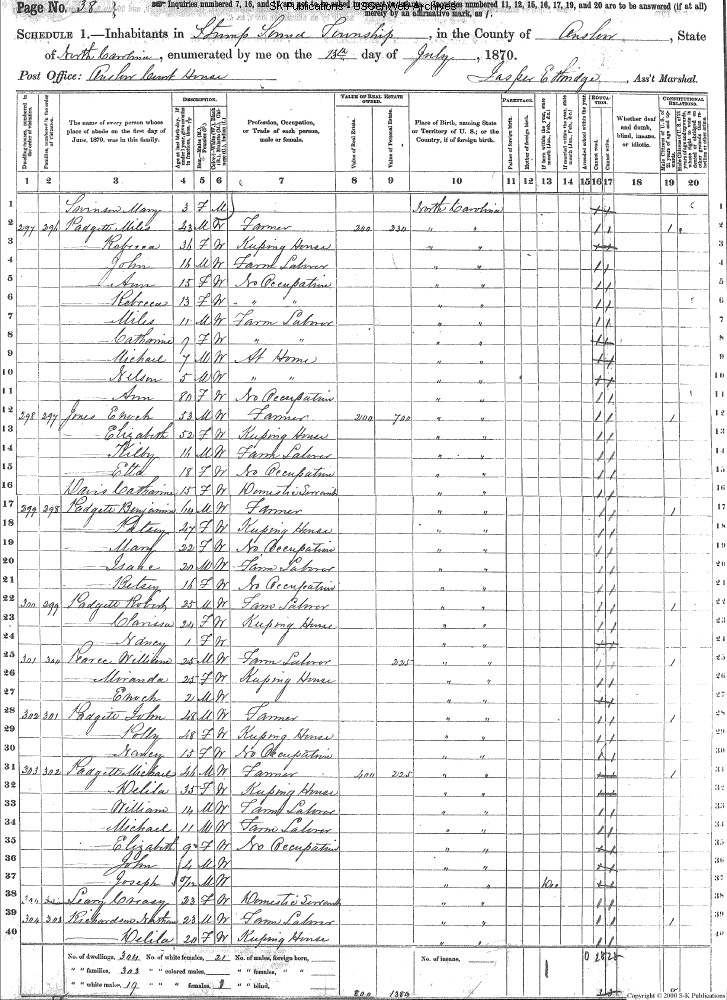 Page No. 38
Inquiries numbered 7, 16, and
are to be answered (if at all)
merely by an affirmative mark, as /.
SK Publications - USGenWeb Archives
SCHEDULE 1.—Inhabitants in Stump Sound Township, in the County of Onslow, State
of North Carolina, enumerated by me on the 13th day of July, 1870.
Post Office: Onslow Court House
Jasper Ethridge, Ass't Marshal.
DESCRIPTION.
VALUE OF REAL ESTATE OWNED.
PARENTAGE.
EDUCATION.
CONSTITUTIONAL RELATIONS.
Dwelling-houses, numbered in the order of visitation.
Families, numbered in the order of visitation.
The name of every person whose place of abode on the first day of June, 1870, was in this family.
Profession, Occupation, or Trade of each person, male or female.
Value of Real Estate.
Value of Personal Estate.
Place of Birth, naming State or Territory of U. S.; or the Country, if of foreign birth.
Father of foreign birth.
Mother of foreign birth.
Attended school within the year.
Cannot read.
Cannot write.
Whether deaf and dumb, blind, insane, or idiotic.
1 2 3 4 5 6 7 8 9 10 11 12 13 14 15 16 17 18 19 20
1 Mary 3 F M North Carolina 1
2 297 296 Padgett Miles 43 M W Farmer 200 230 " " 1 2
3 Rebecca 36 F W Keeping House " " 3
4 John 16 M W Farm Laborer " " 4
5 Ann 15 F W No Occupation " " 5
6 Rebecca 13 F W " " " " 6
7 Miles 11 M W Farm Laborer " " 7
8 Catharine 9 F W " " " " 8
9 Michael 7 M W At Home " " 9
10 Nelson 5 M W " " " " 10
11 Ann 80 F W No Occupation " " 11
12 298 297 Jones Enoch 53 M W Farmer 200 700 " " 1 12
13 Elizabeth 52 F W Keeping House " " 13
14 Kilby 16 M W Farm Laborer " " 14
15 Etta 18 F W No Occupation " " 15
16 Davis Catharine 15 F W Domestic Servant " " 16
17 299 298 Padgett Benjamin M W Farmer " " 1 17
18 Patsey 47 F W Keeping House " " 18
19 Mary 22 F W No Occupation " " 19
20 Isaac 20 M W Farm Laborer " " 20
21 Betsey 16 F W No Occupation " " 21
22 300 299 Padgett Robert 25 M W Farm Laborer " " 1 22
23 Clarissa 24 F W Keeping House " " 23
24 Nancy 1 F W " " 24
25 301 300 Pearce William 25 M W Farm Laborer 225 " " 1 25
26 Miranda 25 F W Keeping House " " 26
27 Enoch 2 M W " " 27
28 302 301 Padgett John 48 M W Farmer " " 1 28
29 Polly 48 F W Keeping House " " 29
30 Nancy 15 F W No Occupation " " 30
31 303 302 Padgett Michael 46 M W Farmer 400 225 " " 1 31
32 Delila 35 F W Keeping House " " 32
33 William 14 M W Farm Laborer " " 33
34 Michael 11 M W Farm Laborer " " 34
35 Elizabeth 9 F W No Occupation " " 35
36 John 4 M W " " 36
37 Joseph M W " " 37
38 Leary 23 F W Domestic Servant " " 38
39 304 303 Richardson 23 M W Farm Laborer " " 1 39
40 Delila 20 F W Keeping House " " 40
No. of dwellings, 304 No. of white females, 21 No. of males, foreign born, No. of insane,
" " families, 303 " " colored males, " " females, " "
" " white males, 19 " " " females, " " blind,
800 1380
Copyright © 2000 S-K Publications